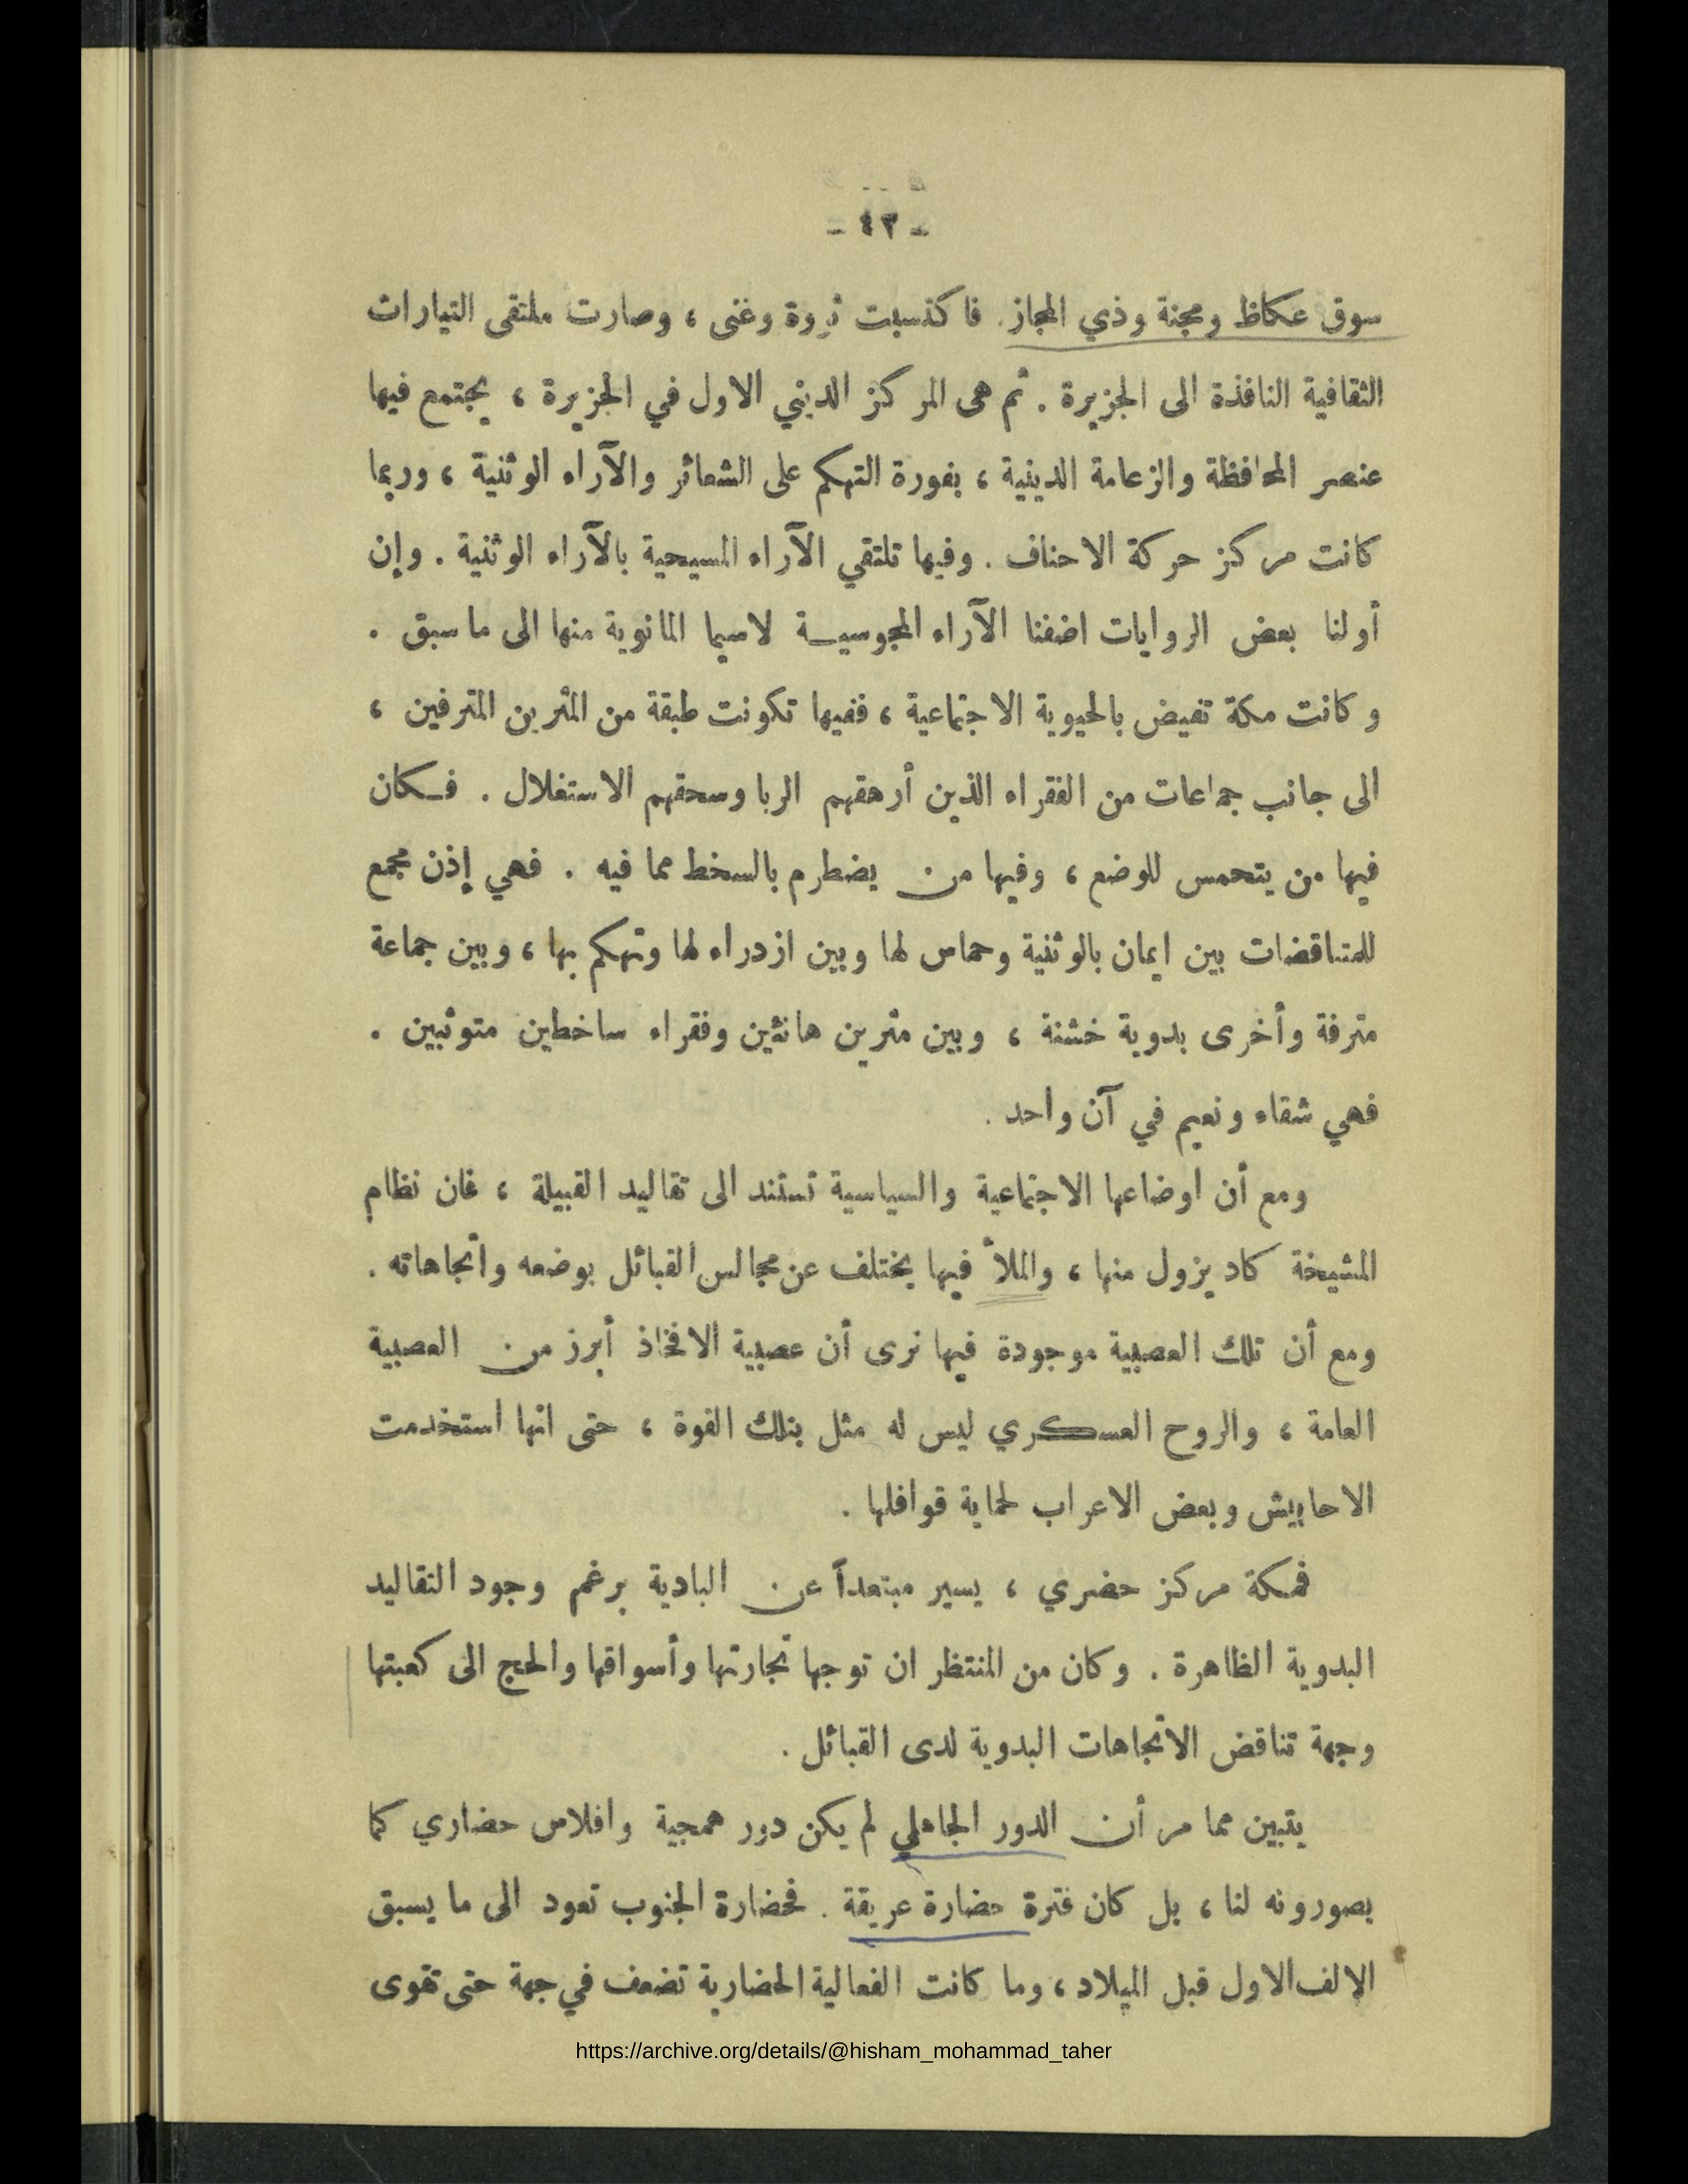 - ٤٣ -
سوق عكاظ ومجنة وذي المجاز. فاكتسبت ثروة وغنى ، وصارت ملتقى التيارات
الثقافية النافذة الى الجزيرة . ثم هى المركز الديني الاول في الجزيرة ، يجتمع فيها
عنصر المحافظة والزعامة الدينية ، بفورة التهكم على الشعائر والآراء الوثنية ، وربما
كانت مركز حركة الاحناف . وفيها تلتقي الآراء المسيحية بالآراء الوثنية . وإن
أولنا بعض الروايات اضفنا الآراء المجوسيـة لاسيما المانوية منها الى ما سبق .
وكانت مكة تفيض بالحيوية الاجتماعية ، ففيها تكونت طبقة من المثرين المترفين ،
الى جانب جماعات من الفقراء الذين أرهقهم الربا وسحقهم الاستغلال . فـكان
فيها من يتحمس للوضع ، وفيها من يضطرم بالسخط مما فيه . فهي إذن مجمع
للمتناقضات بين ايمان بالوثنية وحماس لها وبين ازدراء لها وتهكم بها ، وبين جماعة
مترفة وأخرى بدوية خشنة ، وبين مثرين هانئين وفقراء ساخطين متوثبين .
فهي شقاء ونعيم في آن واحد .
ومع أن اوضاعها الاجتماعية والسياسية تستند الى تقاليد القبيلة ، فان نظام
المشيخة كاد يزول منها ، والملأ فيها يختلف عن مجالس القبائل بوضعه واتجاهاته .
ومع أن تلك العصبية موجودة فيها نرى أن عصبية الافخاذ أبرز من العصبية
العامة ، والروح العسكري ليس له مثل بتلك القوة ، حتى انها استخدمت
الاحابيش وبعض الاعراب لحماية قوافلها .
فمكة مركز حضري ، يسير مبتعداً عن البادية برغم وجود التقاليد
البدوية الظاهرة . وكان من المنتظر ان توجها تجارتها وأسواقها والحج الى كعبتها
وجهة تناقض الاتجاهات البدوية لدى القبائل .
يتبين مما مر أن الدور الجاهلي لم يكن دور همجية وافلاس حضاري كما
يصورونه لنا ، بل كان فترة حضارة عريقة . فحضارة الجنوب تعود الى ما يسبق
الالف الاول قبل الميلاد ، وما كانت الفعالية الحضارية تضعف في جهة حتى تقوى
https://archive.org/details/@hisham_mohammad_taher